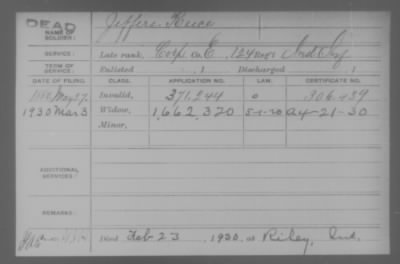 DEAD
NAME OF SOLDIER: Jeffers, Reece
SERVICE: Late rank, Corp. Co. E, 124 Reg't Ind. Inf.
TERM OF SERVICE: Enlisted , 1 Discharged , 1
DATE OF FILING. CLASS. APPLICATION NO. LAW. CERTIFICATE NO.
May 27. Invalid, 371,244 306,439
1930 Mar 3 Widow, 1,662,320 5-1-20 A4-21-30
Minor,
ADDITIONAL SERVICES:
REMARKS:
Died Feb 23, 1930, at Riley, Ind.